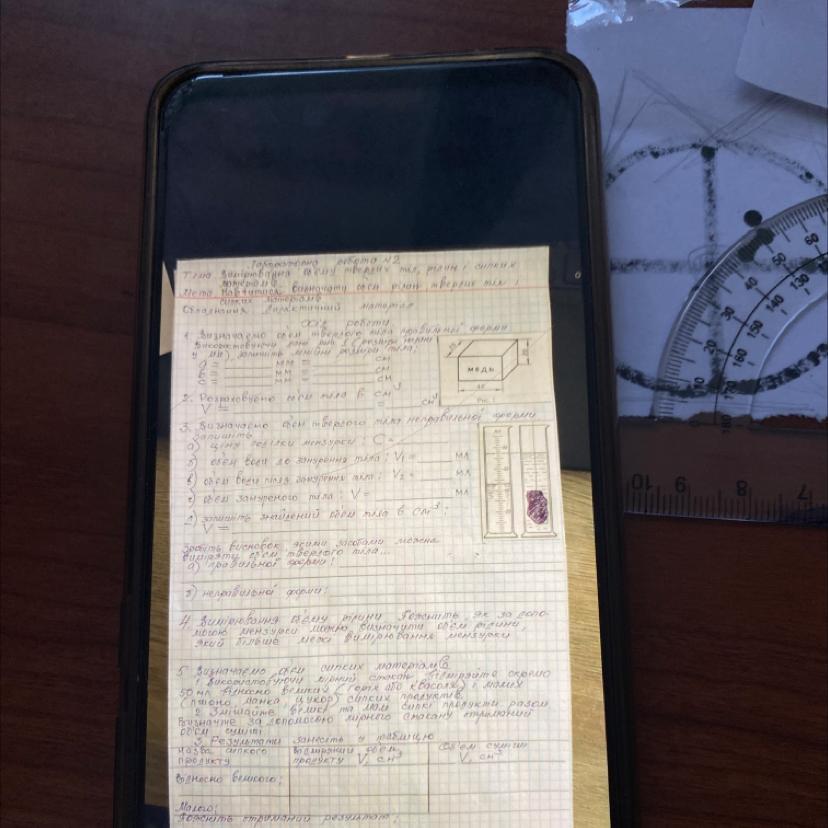 Лабораторна робота №2
Тема. Вимірювання об'єму твердих тіл, рідин і сипких
матеріалів.
Мета. Навчитися визначати об'єм рідин, твердих тіл і
сипких матеріалів
Обладнання: дидактичний матеріал
Хід роботи
1. Визначаємо об'єм твердого тіла правильної форми.
Використовуючи дані рис. 1 (розміри
у мм), запишіть лінійні розміри тіла:
a = мм = см
b = мм = см
c = мм = см
МЕДЬ
Рис. 1
2. Розраховуємо об'єм тіла в см³
V = = см³
3. Визначаємо об'єм твердого тіла неправильної форми
Запишіть
а) ціна поділки мензурки: C =
б) об'єм води до занурення тіла: V₁ = мл
в) об'єм води після занурення тіла: V₂ = мл
г) об'єм зануреного тіла: V = мл
д) запишіть знайдений об'єм тіла в см³:
V =
Зробіть висновок, якими засобами можна
виміряти об'єм твердого тіла...
а) правильної форми:
б) неправильної форми:
4. Вимірювання об'єму рідини. Поясніть, як за допо-
могою мензурки можна визначити об'єм рідини,
який більше межі вимірювання мензурки
5. Визначаємо об'єм сипких матеріалів
1. Використовуючи мірний стакан, відміряйте окремо
50 мл відносно великих (горіх або квасоля) і малих
(пшоно, манка, цукор) сипких продуктів.
2. Змішайте великі та малі сипкі продукти разом.
Визначте за допомогою мірного стакану отриманий
об'єм суміші
3. Результати занесіть у таблицю
Назва сипкого продукту
Відміряний об'єм продукту V, см³
Об'єм суміші V, см³
Відносно великого:
Малого:
Поясніть отриманий результат:
60
50
40
30
20
10
0
130
140
150
160
170
180
10
9
8
7